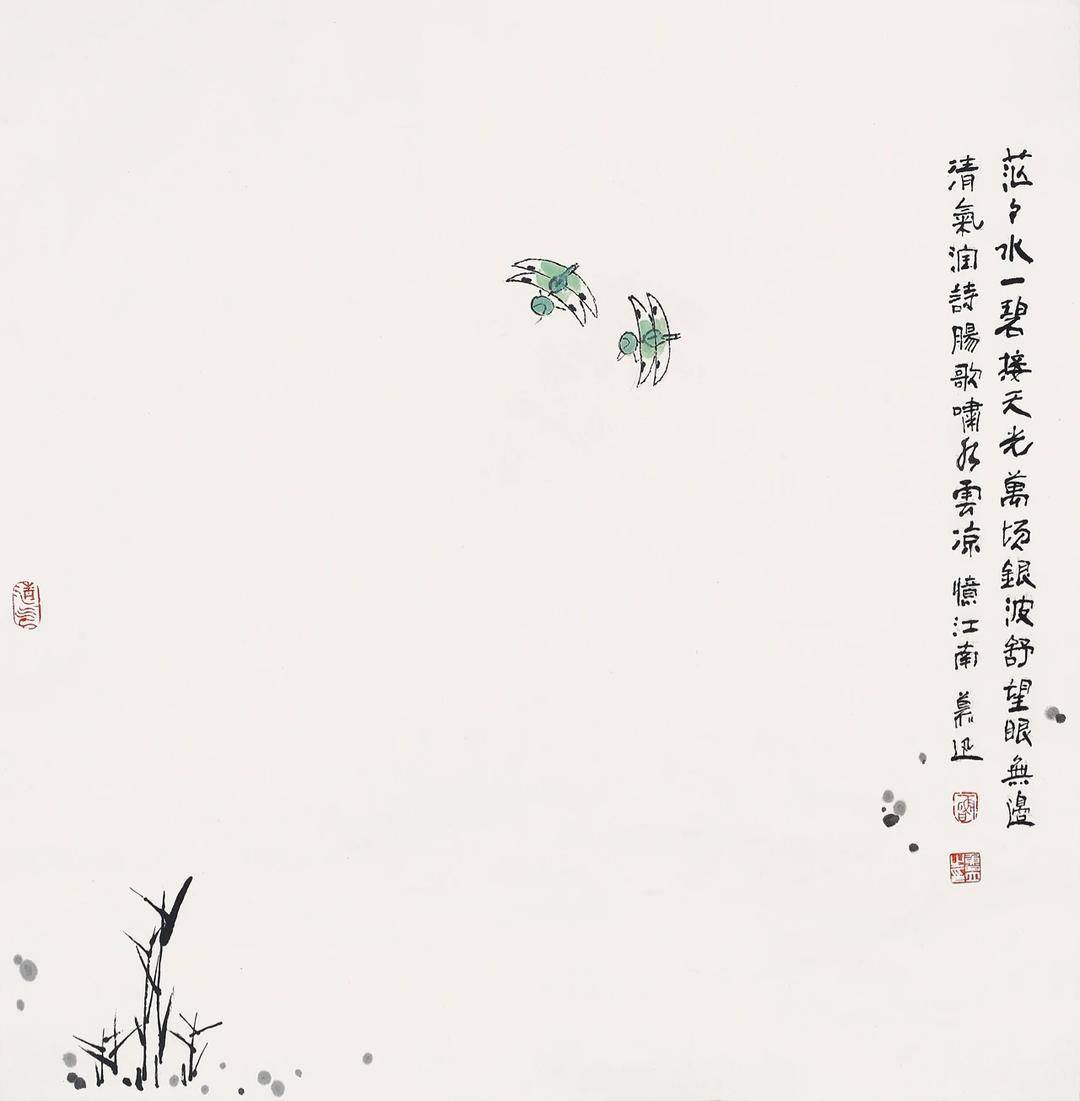 茫々水一碧接天光萬頃銀波舒望眼無邊
清氣润詩腸歌嘯雲凉 憶江南 慕迅